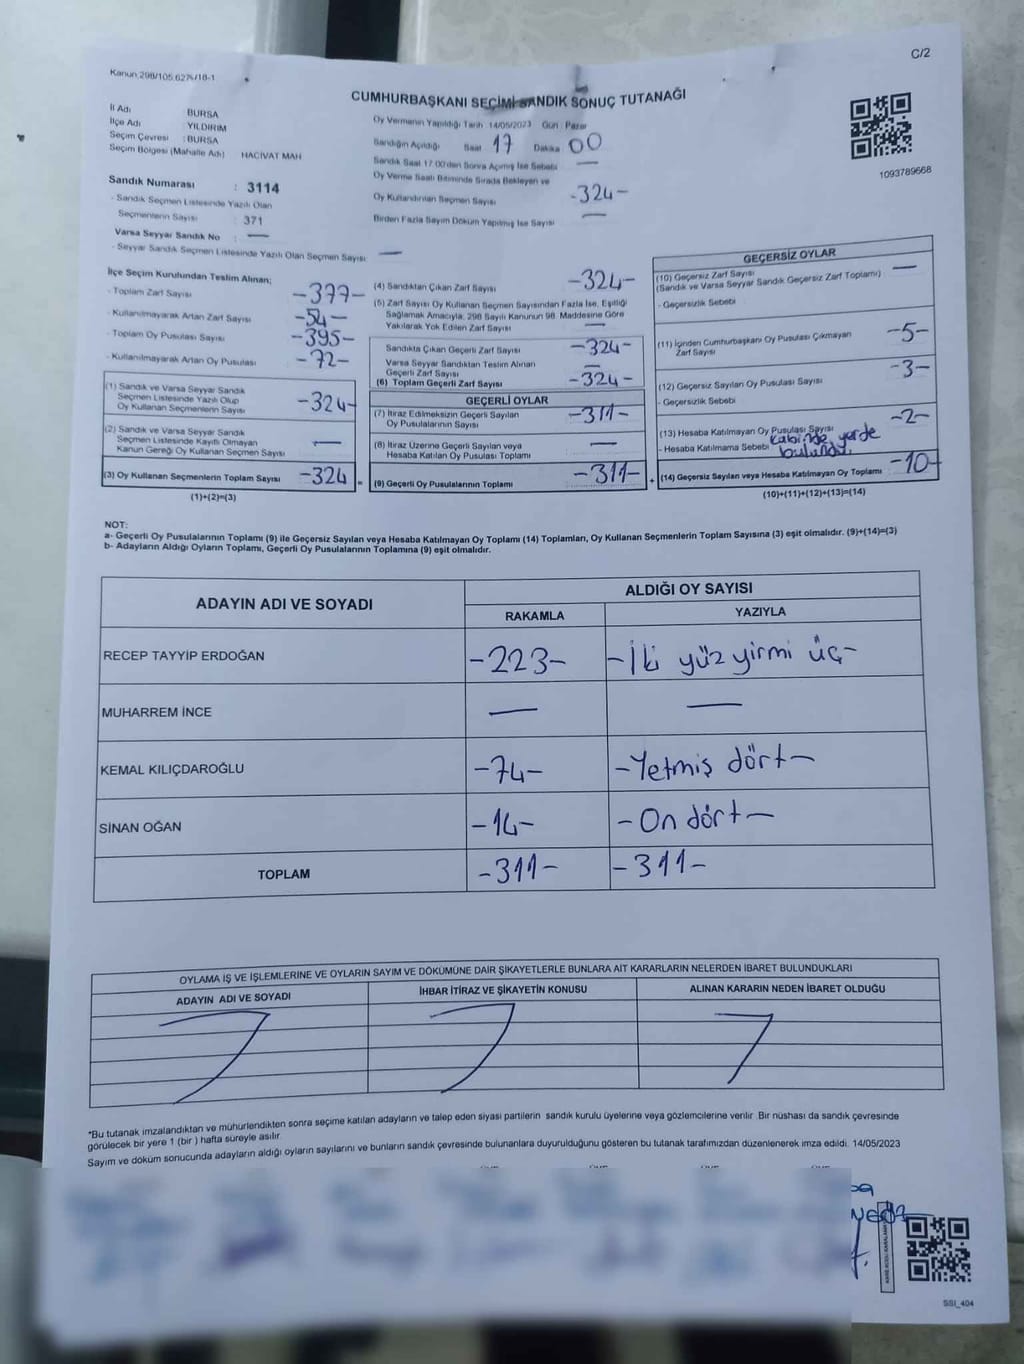 Kanun 298/105.627s/18-1
C/2
CUMHURBAŞKANI SEÇİMİ SANDIK SONUÇ TUTANAĞI
İl Adı BURSA
İlçe Adı YILDIRIM
Seçim Çevresi : BURSA
Seçim Bölgesi (Mahalle Adı) HACİVAT MAH
Sandık Numarası : 3114
- Sandık Seçmen Listesinde Yazılı Olan
Seçmenlerin Sayısı : 371
Varsa Seyyar Sandık No : —
- Seyyar Sandık Seçmen Listesinde Yazılı Olan Seçmen Sayısı —
Oy Vermenin Yapıldığı Tarih 14/05/2023 Gün Pazar
Sandığın Açıldığı Saat 17 Dakika 00
Sandık Saat 17.00'den Sonra Açılmış İse Sebebi —
Oy Verme Saati Bitiminde Sırada Bekleyen ve
Oy Kullandırılan Seçmen Sayısı -324-
Birden Fazla Sayım Döküm Yapılmış İse Sayısı —
1093789668
İlçe Seçim Kurulundan Teslim Alınan;
- Toplam Zarf Sayısı -377-
- Kullanılmayarak Artan Zarf Sayısı -54-
- Toplam Oy Pusulası Sayısı -395-
- Kullanılmayarak Artan Oy Pusulası -72-
(1) Sandık ve Varsa Seyyar Sandık
Seçmen Listesinde Yazılı Olup
Oy Kullanan Seçmenlerin Sayısı -324-
(2) Sandık ve Varsa Seyyar Sandık
Seçmen Listesinde Kayıtlı Olmayan
Kanun Gereği Oy Kullanan Seçmen Sayısı —
(3) Oy Kullanan Seçmenlerin Toplam Sayısı -324
(1)+(2)=(3)
(4) Sandıktan Çıkan Zarf Sayısı -324-
(5) Zarf Sayısı Oy Kullanan Seçmen Sayısından Fazla İse, Eşitliği
Sağlamak Amacıyla, 298 Sayılı Kanunun 98. Maddesine Göre
Yakılarak Yok Edilen Zarf Sayısı —
Sandıkta Çıkan Geçerli Zarf Sayısı -324-
Varsa Seyyar Sandıktan Teslim Alınan
Geçerli Zarf Sayısı —
(6) Toplam Geçerli Zarf Sayısı -324-
GEÇERLİ OYLAR
(7) İtiraz Edilmeksizin Geçerli Sayılan
Oy Pusulalarının Sayısı -311-
(8) İtiraz Üzerine Geçerli Sayılan veya
Hesaba Katılan Oy Pusulası Toplamı —
= (9) Geçerli Oy Pusulalarının Toplamı -311-
GEÇERSİZ OYLAR
(10) Geçersiz Zarf Sayısı —
(Sandık ve Varsa Seyyar Sandık Geçersiz Zarf Toplamı)
- Geçersizlik Sebebi
(11) İçinden Cumhurbaşkanı Oy Pusulası Çıkmayan
Zarf Sayısı -5-
(12) Geçersiz Sayılan Oy Pusulası Sayısı -3-
- Geçersizlik Sebebi
(13) Hesaba Katılmayan Oy Pusulası Sayısı -2-
- Hesaba Katılmama Sebebi kabinde yerde
bulundu.
+ (14) Geçersiz Sayılan veya Hesaba Katılmayan Oy Toplamı -10-
(10)+(11)+(12)+(13)=(14)
NOT:
a- Geçerli Oy Pusulalarının Toplamı (9) ile Geçersiz Sayılan veya Hesaba Katılmayan Oy Toplamı (14) Toplamları, Oy Kullanan Seçmenlerin Toplam Sayısına (3) eşit olmalıdır. (9)+(14)=(3)
b- Adayların Aldığı Oyların Toplamı, Geçerli Oy Pusulalarının Toplamına (9) eşit olmalıdır.
ADAYIN ADI VE SOYADI
ALDIĞI OY SAYISI
RAKAMLA YAZIYLA
RECEP TAYYİP ERDOĞAN -223- -İki yüz yirmi üç-
MUHARREM İNCE — —
KEMAL KILIÇDAROĞLU -74- -Yetmiş dört-
SİNAN OĞAN -14- -On dört-
TOPLAM -311- -311-
OYLAMA İŞ VE İŞLEMLERİNE VE OYLARIN SAYIM VE DÖKÜMÜNE DAİR ŞİKAYETLERLE BUNLARA AİT KARARLARIN NELERDEN İBARET BULUNDUKLARI
ADAYIN ADI VE SOYADI İHBAR İTİRAZ VE ŞİKAYETİN KONUSU ALINAN KARARIN NEDEN İBARET OLDUĞU
*Bu tutanak imzalandıktan ve mühürlendikten sonra seçime katılan adayların ve talep eden siyasi partilerin sandık kurulu üyelerine veya gözlemcilerine verilir. Bir nüshası da sandık çevresinde
görülecek bir yere 1 (bir) hafta süreyle asılır.
Sayım ve döküm sonucunda adayların aldığı oyların sayılarını ve bunların sandık çevresinde bulunanlara duyurulduğunu gösteren bu tutanak tarafımızdan düzenlenerek imza edildi. 14/05/2023
SSI_404